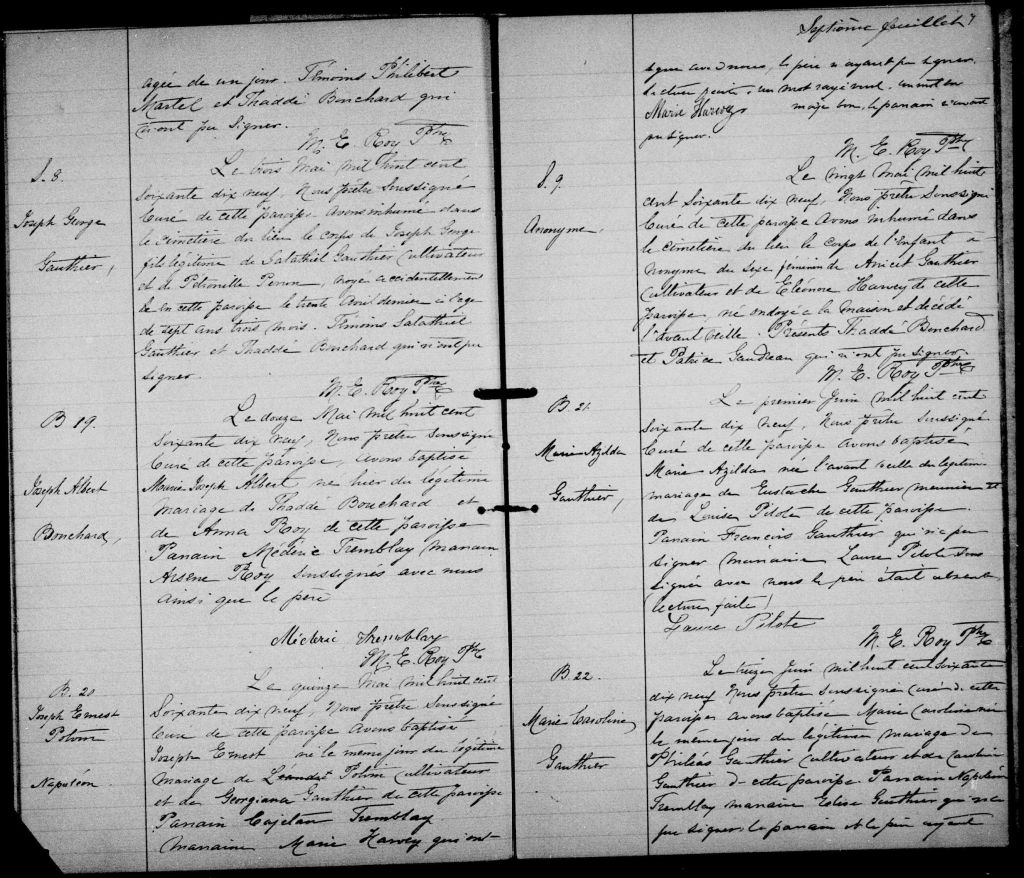 agée de un jour. Témoins Philibert
Martel et Thaddé Bouchard qui
n'ont pu signer.
M. E. Roy Ptre
S. 8.
Joseph George
Gauthier,
Le trois Mai mil huit cent
soixante dix neuf, Nous prêtre soussigné
Curé de cette paroisse avons inhumé dans
le cimetière du lieu le corps de Joseph George
fils légitime de Salathiel Gauthier cultivateur
et de Pétronille Perron, noyé accidentellement
en cette paroisse le trente Avril dernier à l'age
de sept ans trois mois. Témoins Salathiel
Gauthier et Thaddé Bouchard qui n'ont pu
signer.
M. E. Roy Ptre
B 19.
Joseph Albert
Bouchard,
Le douze Mai mil huit cent
soixante dix neuf, Nous prêtre soussigné
Curé de cette paroisse, avons baptisé
Joseph Albert, né hier du légitime
mariage de Thaddé Bouchard et
de Anna Roy de cette paroisse
Parrain Méderic Tremblay Marraine
Arsène Roy soussignés avec nous
ainsi que le père
Méderic Tremblay
M. E. Roy Ptre
B. 20
Joseph Ernest
Potvin
Napoléon
Le quinze Mai mil huit cent
soixante dix neuf, Nous prêtre soussigné
Curé de cette paroisse avons baptisé
Joseph Ernest né le même jour du légitime
mariage de Potvin cultivateur
et de Georgiana Gauthier de cette paroisse
Parrain Cajetan Tremblay
marraine Marie Harvey qui ont
Septième feuillet 7
signé avec nous, le père n'ayant pu signer.
Lecture faite. un mot rayé nul. un mot en
Marie Harvey marge bon, le parrain n'ayant
pu signer.
M. E. Roy Ptre
S. 9.
Anonyme,
Le vingt Mai mil huit
cent soixante dix neuf, Nous prêtre soussigné
Curé de cette paroisse avons inhumé dans
le cimetière du lieu le corps de l'enfant a-
nonyme du sexe féminin de Anicet Gauthier
cultivateur et de Eléonore Harvey de cette
paroisse, né ondoyé a la maison et décédé
l'avant veille. Présents Thaddé Bouchard
et Patrice Gaudreau qui n'ont pu signer.
M. E. Roy Ptre
B. 21.
Marie Azilda
Gauthier,
Le premier Juin mil huit cent
soixante dix neuf, Nous prêtre soussigné
Curé de cette paroisse avons baptisé
Marie Azilda née l'avant veille du légitime
mariage de Eustache Gauthier meunier et
de Louise Pilote de cette paroisse.
Parrain François Gauthier qui n'a pu
signer marraine Laure Pilote sous
signée avec nous le père était absent
(lecture faite)
Laure Pilote
M. E. Roy Ptre
B. 22.
Marie Caroline
Gauthier
Le treize Juin mil huit cent soixante
dix neuf Nous prêtre soussigné curé de cette
paroisse avons baptisé Marie Caroline née
le même jour du légitime mariage de
Philéas Gauthier cultivateur et de
Gauthier de cette paroisse Parrain Napoléon
Tremblay marraine Gauthier qui n'a
pu signer, le parrain et le père ayant